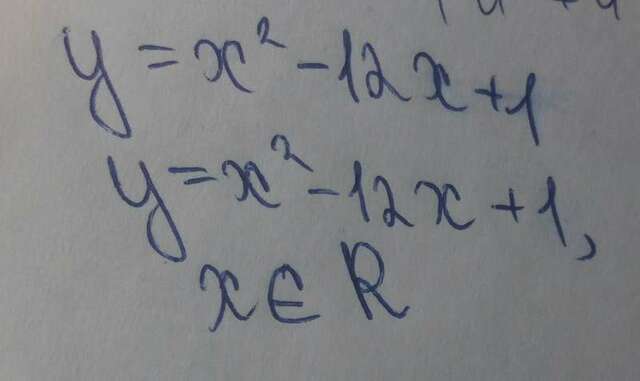 y = x² - 12x + 1
y = x² - 12x + 1,
x ∈ R